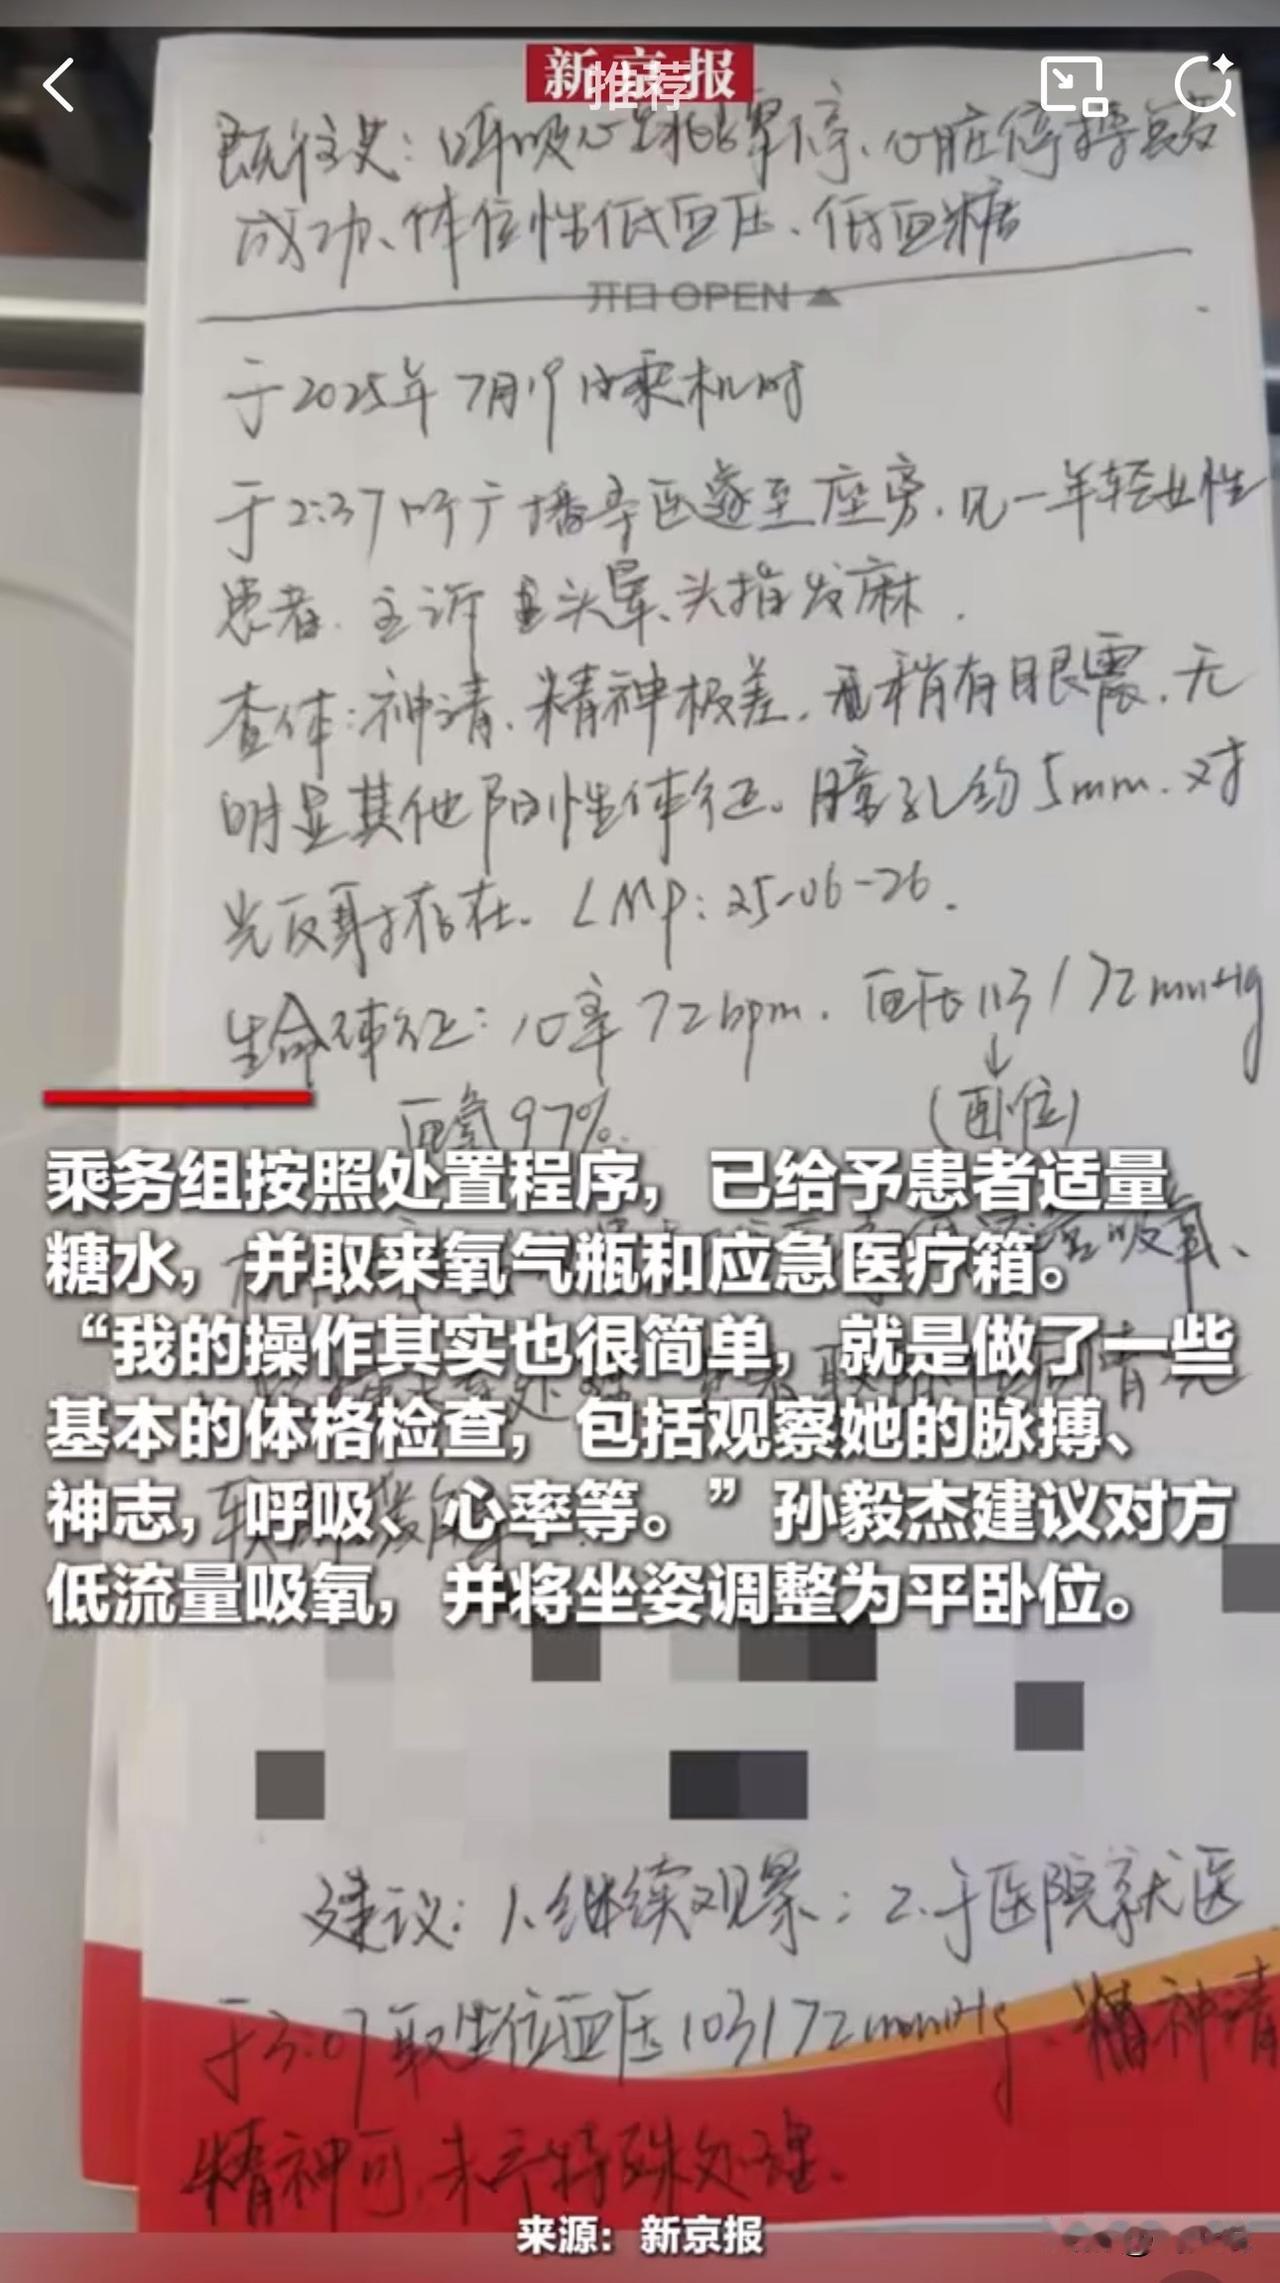 新京报
推荐
既往史：呼吸心跳骤停、心脏停搏复苏
成功、体位性低血压、低血糖
开口 OPEN
于2025年7月19日乘机时
于2:37听广播寻医遂至座旁，见一年轻女性
患者，主诉头晕、头指发麻．
查体：神清，精神极差，稍有眼震，无
明显其他阳性体征。瞳孔约5mm．对
光反射存在。LMP：25-06-26．
生命体征：心率72bpm．血压113/72mmHg
血氧97%
乘务组按照处置程序，已给予患者适量
糖水，并取来氧气瓶和应急医疗箱。
“我的操作其实也很简单，就是做了一些
基本的体格检查，包括观察她的脉搏、
神志，呼吸、心率等。”孙毅杰建议对方
低流量吸氧，并将坐姿调整为平卧位。
建议：1.继续观察；2.于医院就医
于3:07取坐位血压103/72mmHg、神清
精神可，未予特殊处理．
来源：新京报